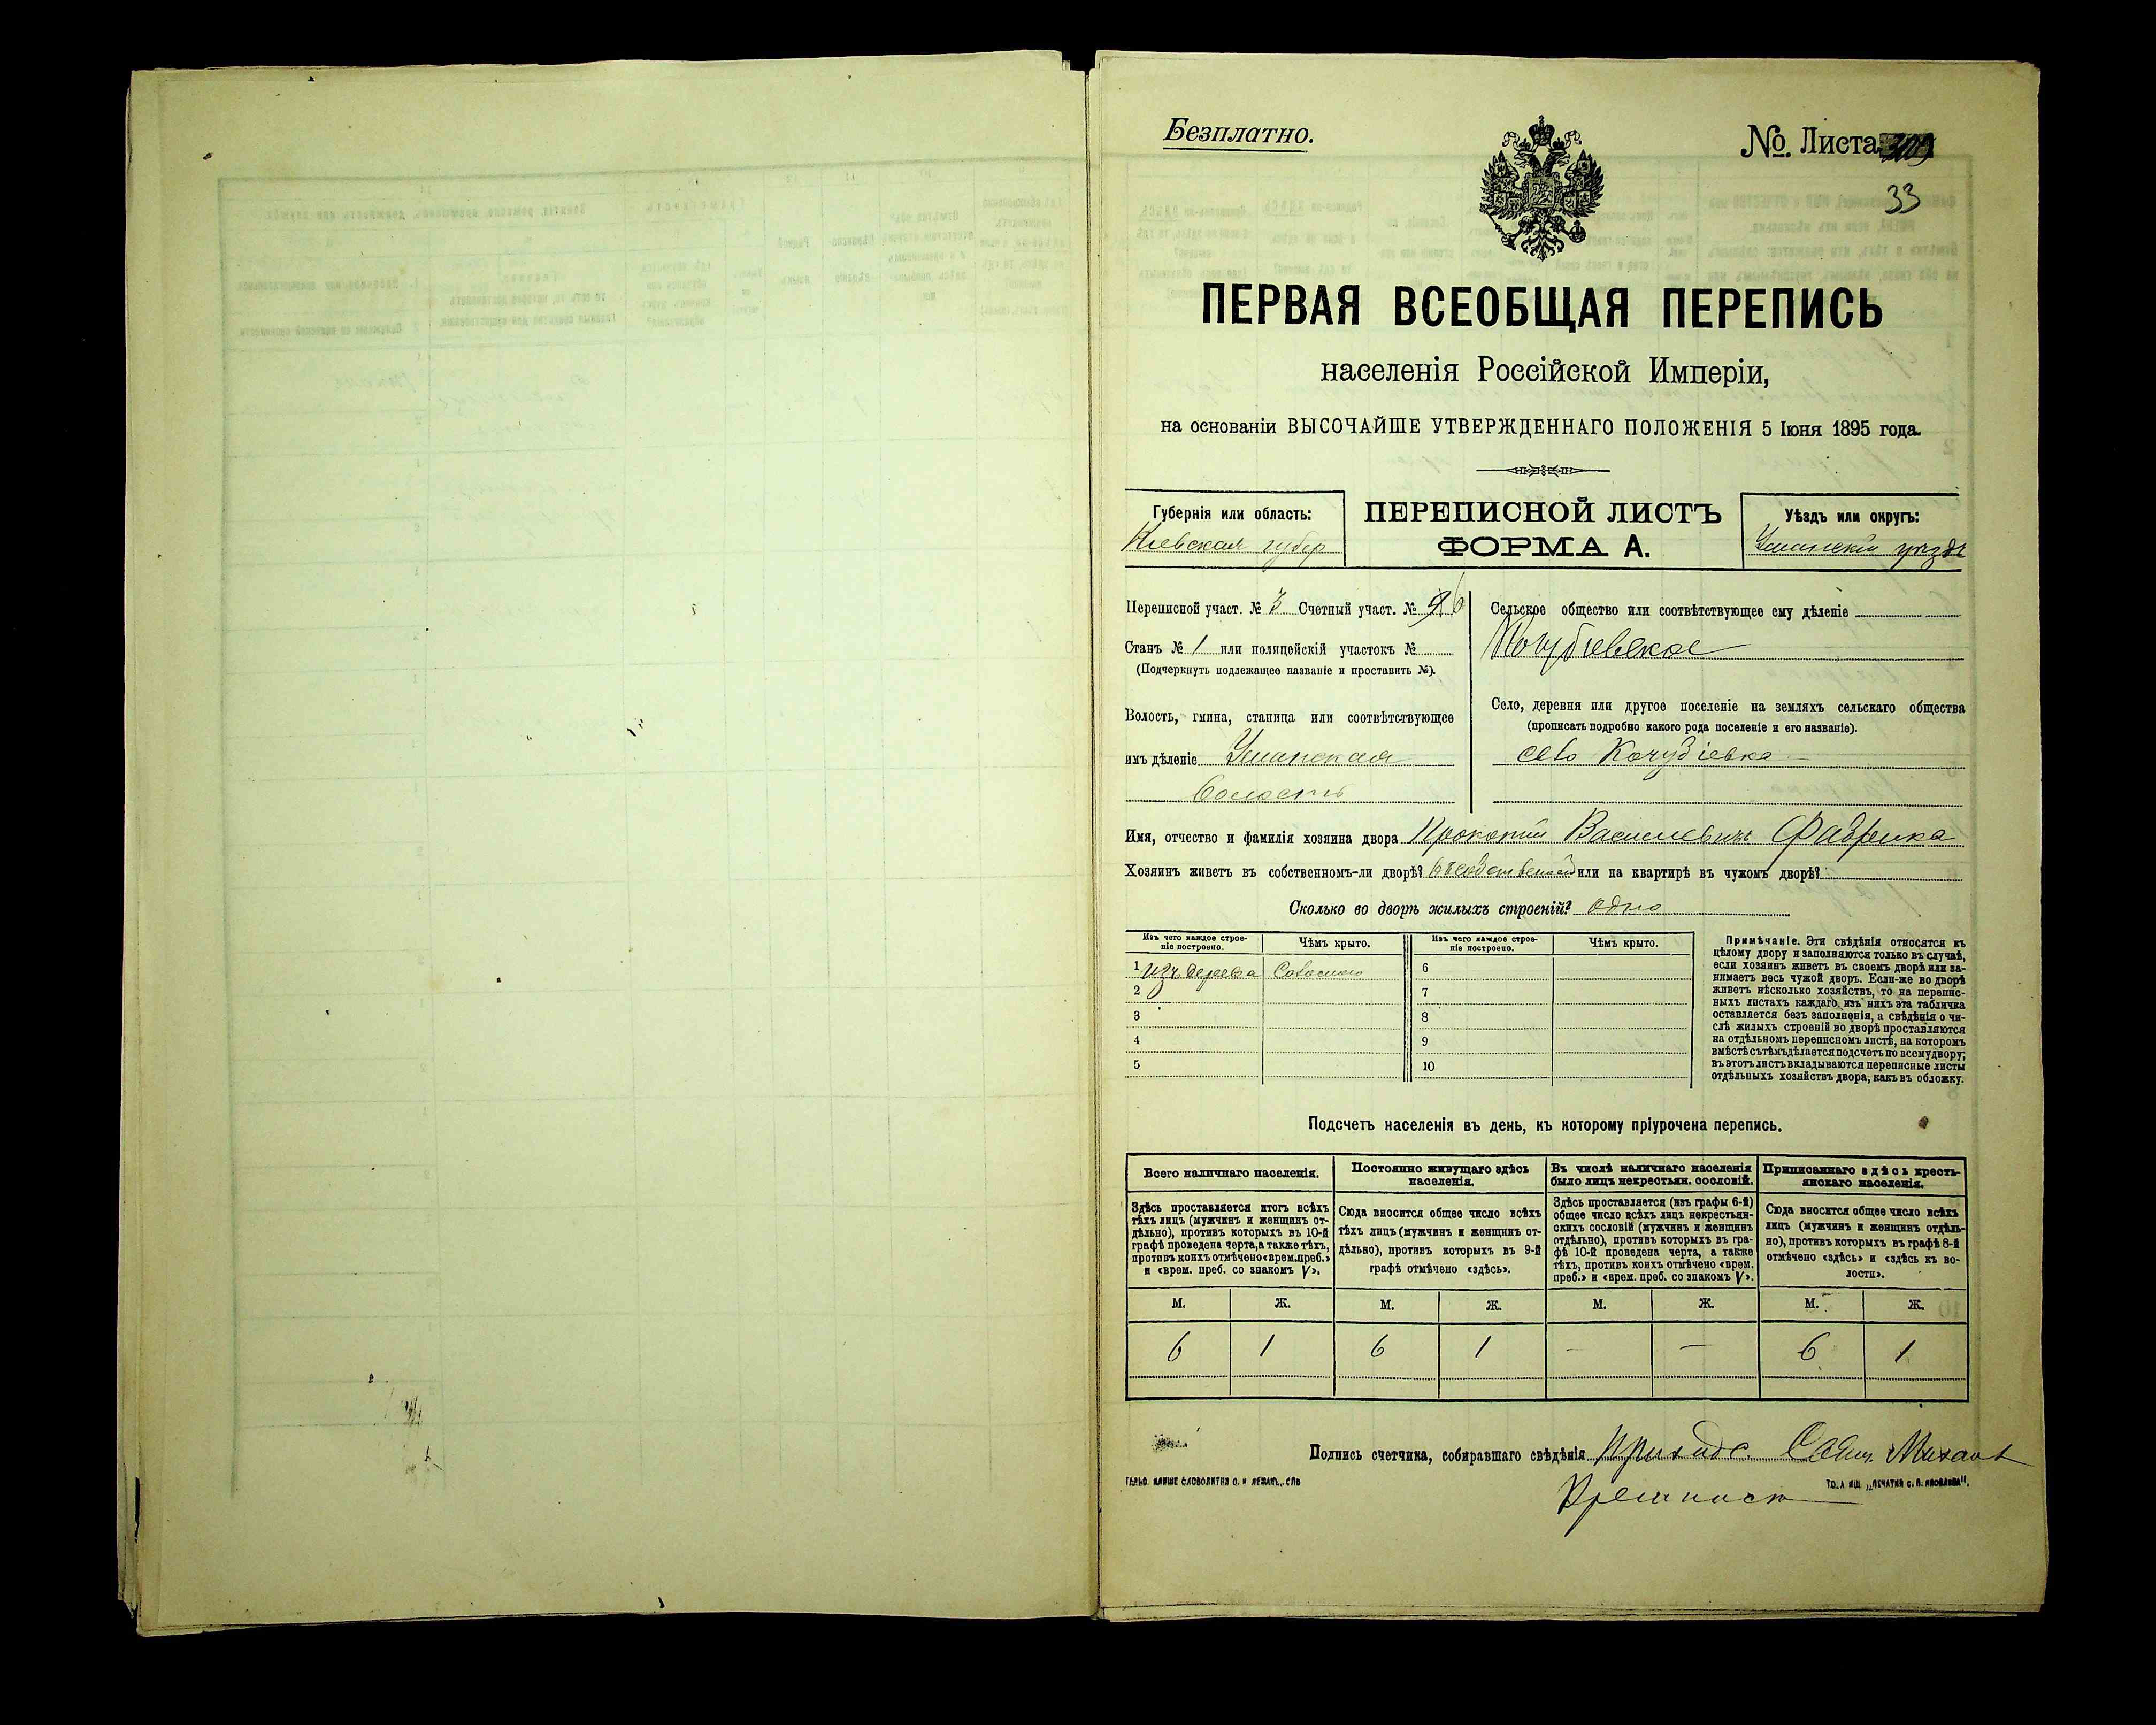 Безплатно.
№. Листа
33
ПЕРВАЯ ВСЕОБЩАЯ ПЕРЕПИСЬ
населенія Россійской Имперіи,
на основаніи ВЫСОЧАЙШЕ УТВЕРЖДЕННАГО ПОЛОЖЕНІЯ 5 Іюня 1895 года.
Губернія или область:
Кіевская губер
ПЕРЕПИСНОЙ ЛИСТЪ
ФОРМА А.
Уѣздъ или округъ:
Уманскій уѣздъ
Переписной участ. № 3 Счетный участ. №
Станъ № 1 или полицейскій участокъ №
(Подчеркнуть подлежащее названіе и проставить №).
Волость, гмина, станица или соотвѣтствующее
имъ дѣленіе Уманская
Волость
Сельское общество или соотвѣтствующее ему дѣленіе
Кочубіевское
Село, деревня или другое поселеніе на земляхъ сельскаго общества
(прописать подробно какого рода поселеніе и его названіе).
село Кочубіевка
Имя, отчество и фамилія хозяина двора Прокопій Василевичъ
Хозяинъ живетъ въ собственномъ-ли дворѣ? въ собственной или на квартирѣ въ чужомъ дворѣ?
Сколько во дворѣ жилыхъ строеній? одно
Изъ чего каждое строе-
ніе построено.
Чѣмъ крыто.
Изъ чего каждое строе-
ніе построено.
Чѣмъ крыто.
1 изъ дерева Соломою 6
2 7
3 8
4 9
5 10
Примѣчаніе. Эти свѣдѣнія относятся къ
цѣлому двору и заполняются только въ случаѣ,
если хозяинъ живетъ въ своемъ дворѣ или за-
нимаетъ весь чужой дворъ. Если-же во дворѣ
живетъ нѣсколько хозяйствъ, то на перепис-
ныхъ листахъ каждаго изъ нихъ эта табличка
оставляется безъ заполненія, а свѣдѣнія о чи-
слѣ жилыхъ строеній во дворѣ проставляются
на отдѣльномъ переписномъ листѣ, на которомъ
вмѣстѣ съ тѣмъ дѣлается подсчетъ по всему двору;
въ этотъ листъ вкладываются переписные листы
отдѣльныхъ хозяйствъ двора, какъ въ обложку.
Подсчетъ населенія въ день, къ которому пріурочена перепись.
Всего наличнаго населенія.
Здѣсь проставляется итогъ всѣхъ
тѣхъ лицъ (мужчинъ и женщинъ от-
дѣльно), противъ которыхъ въ 10-й
графѣ проведена черта, а также тѣхъ,
противъ коихъ отмѣчено «врем. преб.»
и «врем. преб. со знакомъ V».
Постоянно живущаго здѣсь
населенія.
Сюда вносится общее число всѣхъ
тѣхъ лицъ (мужчинъ и женщинъ от-
дѣльно), противъ которыхъ въ 9-й
графѣ отмѣчено «здѣсь».
Въ числѣ наличнаго населенія
было лицъ некрестьян. сословій.
Здѣсь проставляется (изъ графы 6-й)
общее число всѣхъ лицъ некрестьян-
скихъ сословій (мужчинъ и женщинъ
отдѣльно), противъ которыхъ въ гра-
фѣ 10-й проведена черта, а также
тѣхъ, противъ коихъ отмѣчено «врем.
преб.» и «врем. преб. со знакомъ V».
Приписаннаго здѣсь кресть-
янскаго населенія.
Сюда вносится общее число всѣхъ
лицъ (мужчинъ и женщинъ отдѣль-
но), противъ которыхъ въ графѣ 8-й
отмѣчено «здѣсь» и «здѣсь къ во-
лости».
М. Ж. М. Ж. М. Ж. М. Ж.
6 1 6 1 — — 6 1
Подпись счетчика, собиравшаго свѣдѣнія